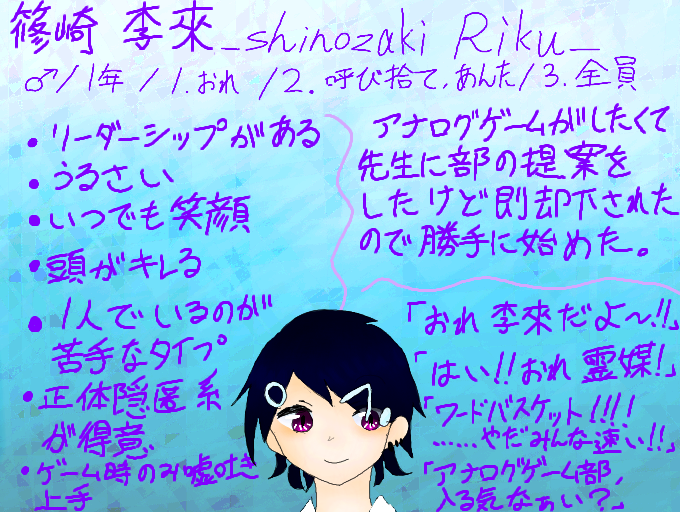 篠崎 李來_shinozaki Riku_
♂/1年/1.おれ/2.呼び捨て,あんた/3.全員
・リーダーシップがある
・うるさい
・いつでも笑顔
・頭がキレる
・1人でいるのが
苦手なタイプ
・正体隠匿系
が得意
・ゲーム時のみ嘘吐き
上手
アナログゲームがしたくて
先生に部の提案を
したけど即却下された
ので勝手に始めた。
「おれ李來だよ〜!!」
「はい!!おれ霊媒!」
「ワードバスケット!!!!
……やだみんな速い!!」
「アナログゲーム部,
入る気なぁい?」